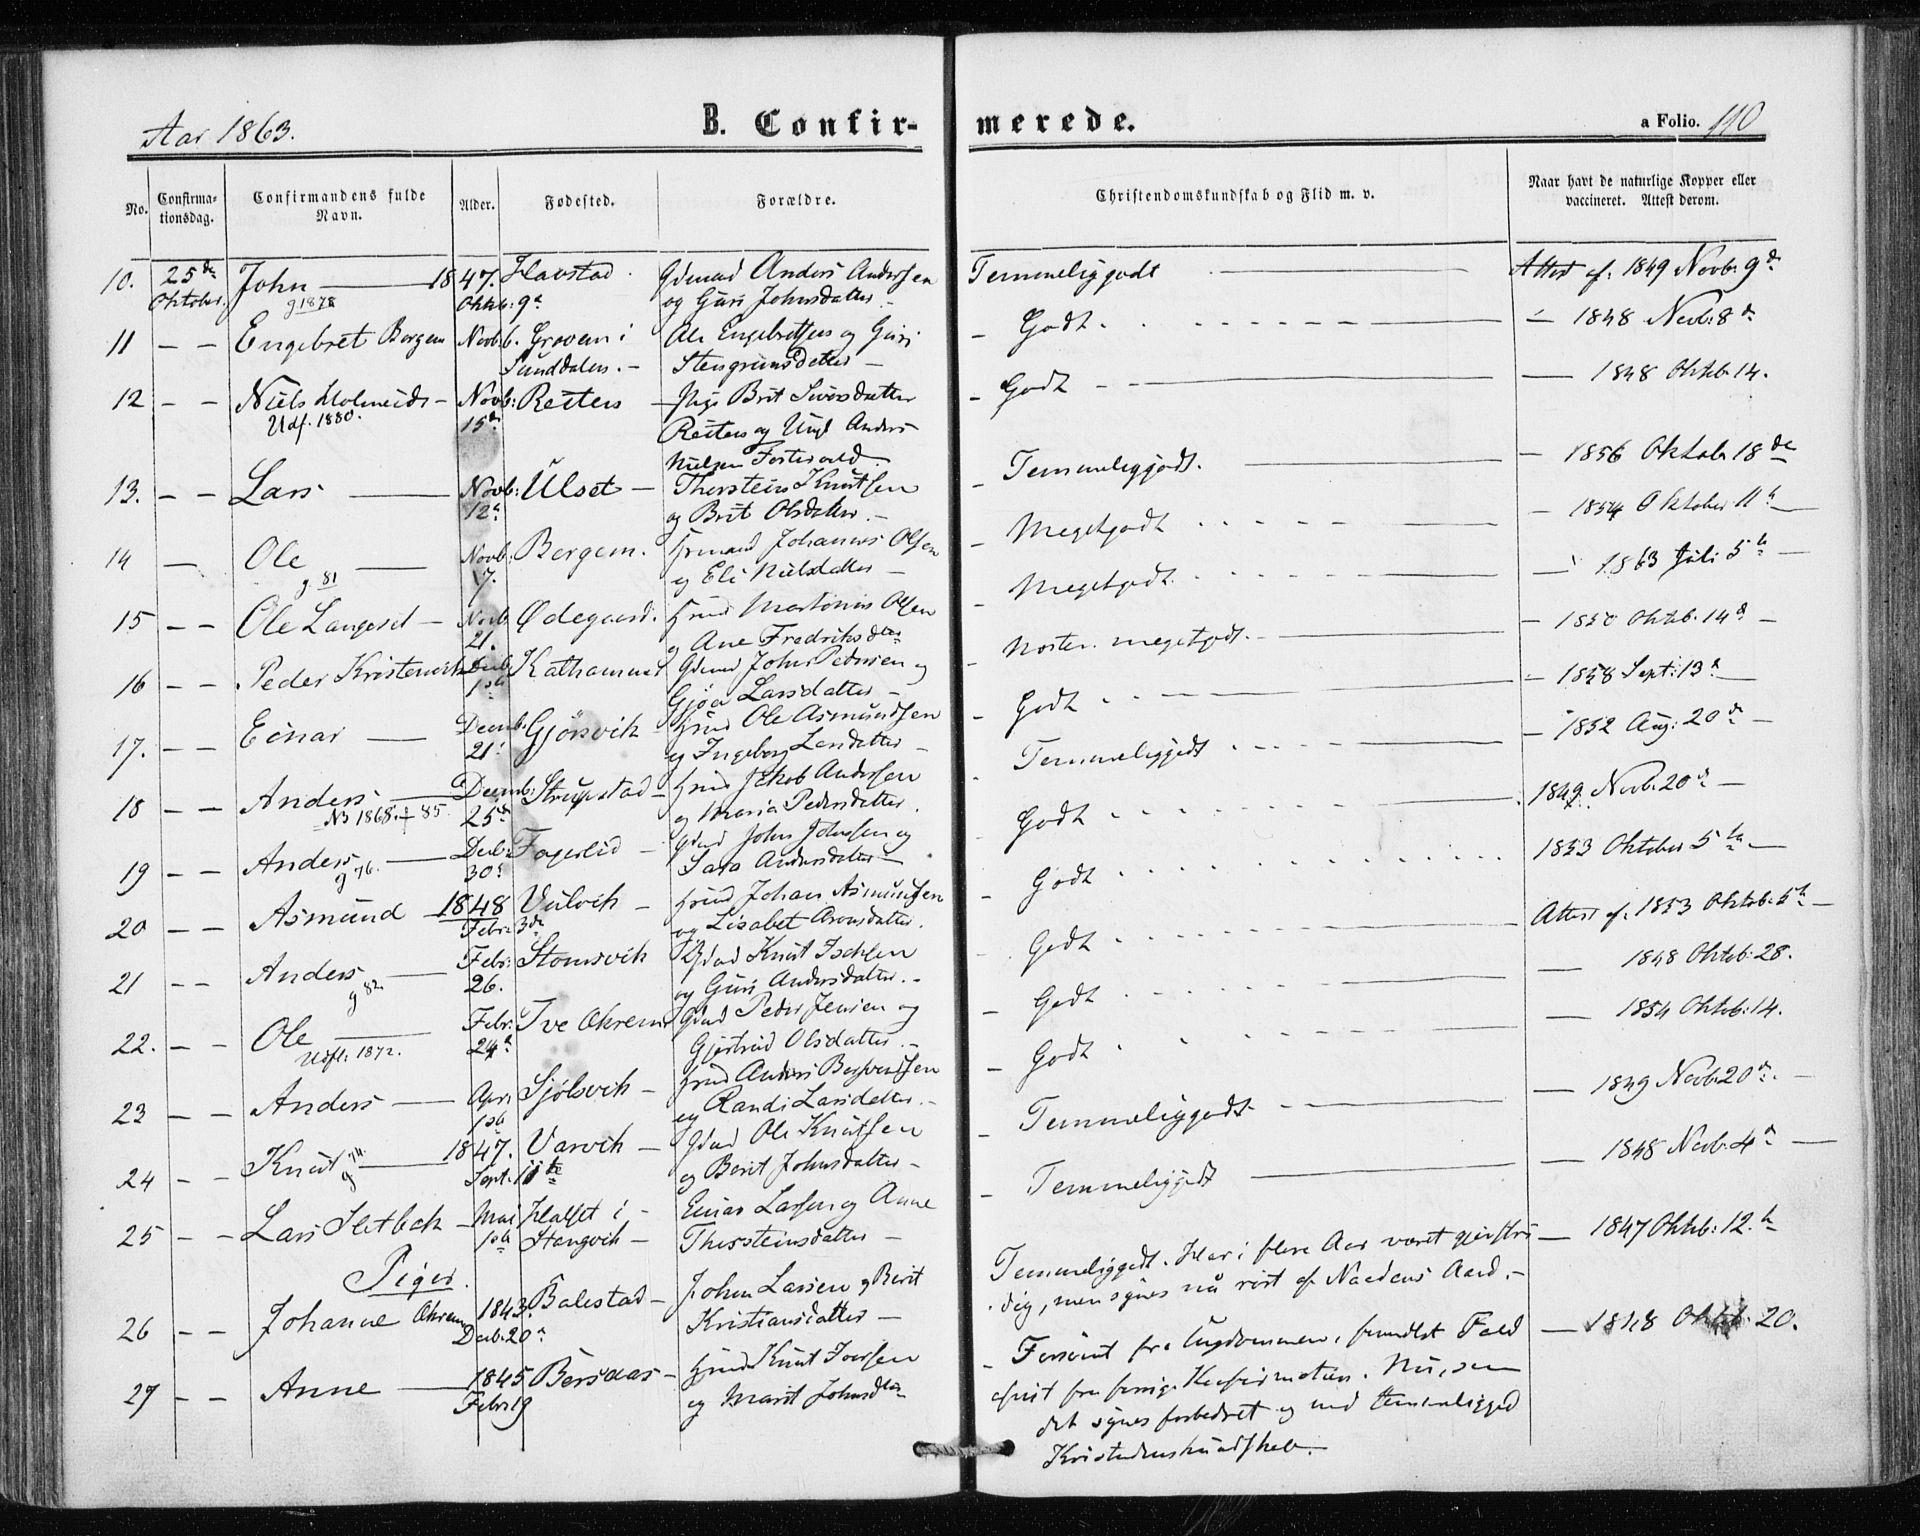 Aar 1863.
B. Confirmerede.
a Folio. 110
No. Confirmationsdag. Confirmandens fulde Navn. Alder. Fødested. Forældre. Christendomskundskab og Flid m. v. Naar havt de naturlige Kopper eller vaccineret. Attest derom.
10. 25de Oktober. John g 1878 1847. Oktb: 9de Havstad. Gdmand Anders Anderssen og Guri Johnsdatter. Temmeliggodt Attest af 1849 Novb: 9de
11 Engebret Bergem Novb. 6. Groven i Sunddalen. Ole Engebretsen og Guri Stengrimsdatter Godt. 1848 Novb: 8de
12 Niels Udf. 1880. Novb: 15de Reiten Brit Siversdatter Reiten og Ungk Anders Nielsen Godt 1848 Oktb. 14.
13. Lars Novb: 12te Ulset Thorstein Knutsen og Brit Olsdatter. Temmeliggodt. 1856 Oktob. 18de
14 Ole g. 81 Novb: 7. Bergem. Johannes Olsen og Eli Nielsdatter Megetgodt 1854 Oktober 11te
15 Ole Langeset Novb 21. Ødegaard. Martinus Olsen og Ane Fredriksdtr Megetgodt. 1863 Juli 5te
16 Peder Kristenvik Decb. 1ste Kathammer Gdmd John Pedersen og Gjøa Larsdatter Noksaa megetgodt. 1850 Oktob. 14de
17. Einar Decmb. 21. Gjørsvik Hmd Ole Asmundsen og Ingeborg Larsdatter Godt 1858 Sept: 13de
18 Anders NB 1868. + 85. Decmb: 25de Strupstad Hmd Jakob Anderssen og Maria Pedersdatter. Temmeliggodt 1852 Aug: 20de
19 Anders g 76. Decb: 30. Fagerlid Gmd John Johnsen og Sara Andersdatter Godt 1849 Novb. 20de
20 Asmund 1848 Febr: 3de Vulvik Hmd Johan Asmundsen og Lisabet Aronsdatter. Godt 1853 Oktober 5te
21 Anders g 82. Febr: 26. Stomsvik Gmd Knut Iselsen og Guri Andersdatter. Godt Attest af 1853 Oktob. 5te
22. Ole Udfl. 1872. Febr: 24de Tve Okrem Gmd Peder Jensen og Gjertrud Olsdatter. Godt 1848 Oktob: 28.
23 Anders Apr: 1ste Sjølsvik Hmd Anders og Randi Larsdatter. Godt 1854 Oktob: 14.
24 Knut g 74. 1847. Sept. 11te Varvik Gmd Ole Knutsen og Berit Johnsdatter Temmeliggodt 1849 Novb. 20de
25 Lars Sletbak Mai 1ste Halset i Stangvik Einar Larsen og Anne Thorsteinsdatter Temmeliggodt 1848 Novb. 4de
Piger.
26 Johanne Okrem 1843. Decb. 20de Balestad John Larsen og Berit Kristiansdatter Temmeliggodt. Har i flere Aar været gjenstridig, men synes nu rørt af Naadens Aand. 1847 Oktb: 12te
27 Anne 1845 Febr: 19 Bersaas Hmd Knut Iversen og Marit Johnsdtr Forsømt fra Ungdommen, forrige Konfirmation. Nu, som det synes forbedret og med temmeliggod Kristendomskundskab. 1848 Oktb. 20.